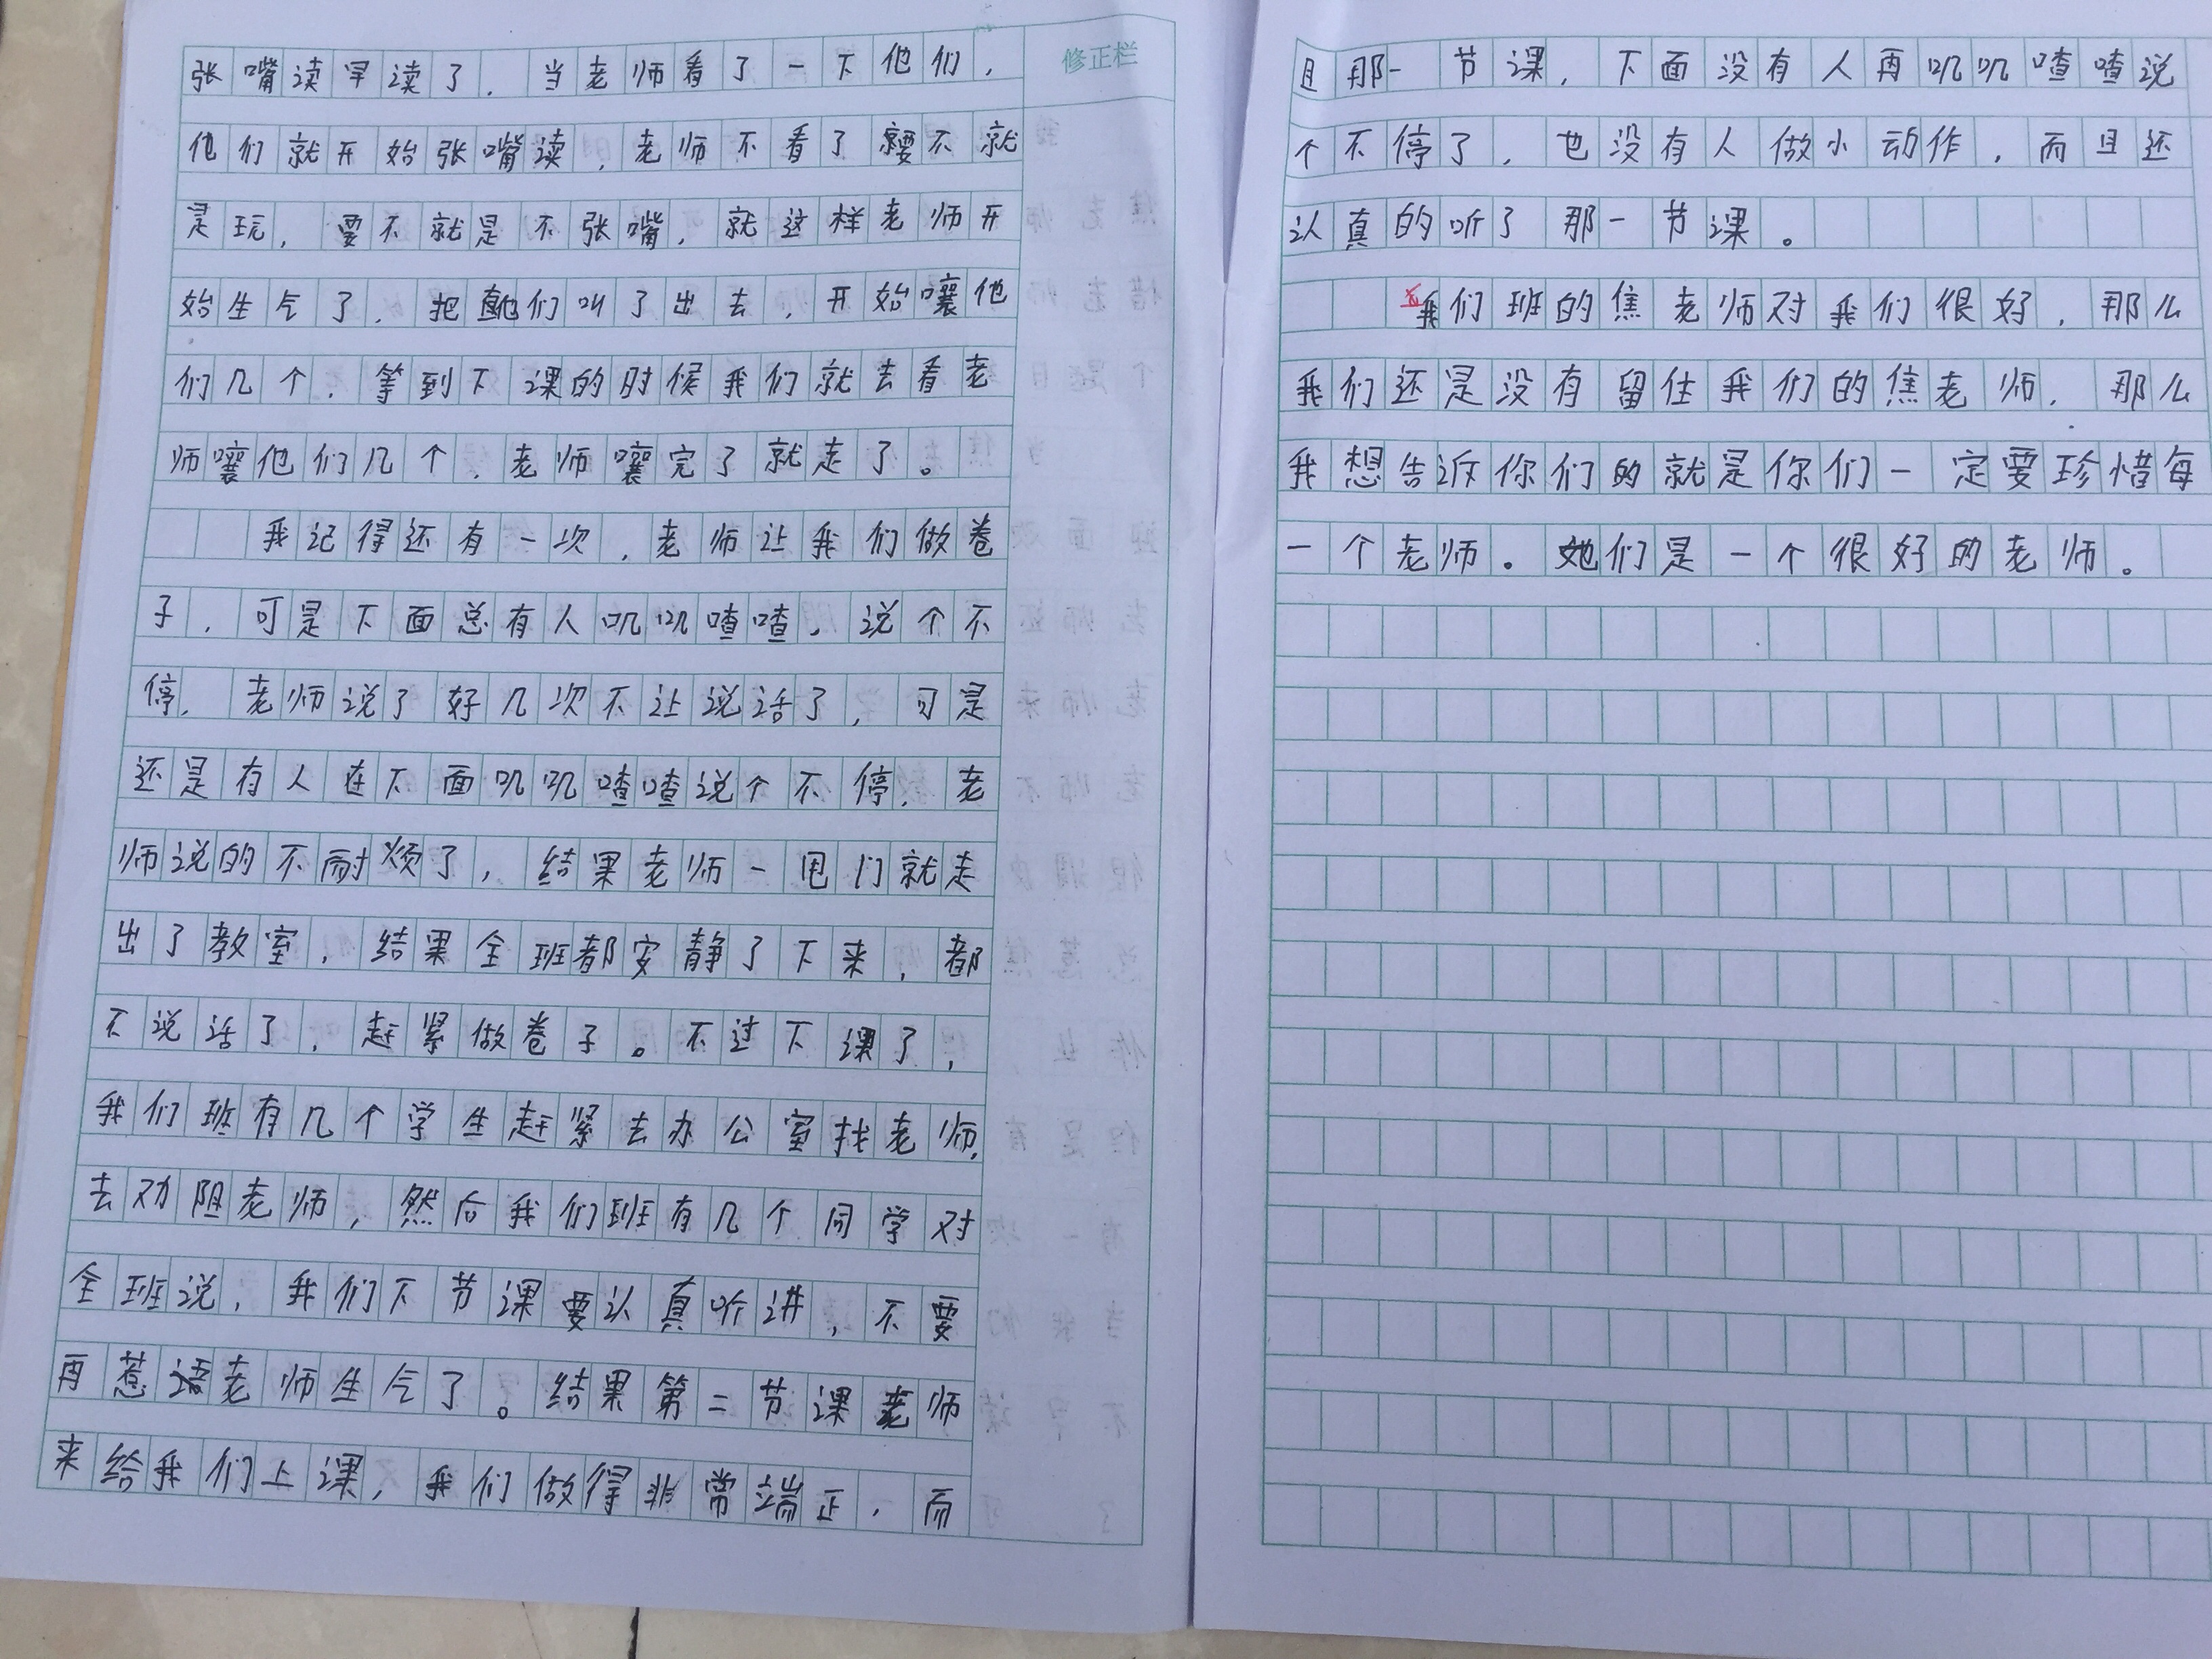 张嘴读早读了，当老师看了一下他们，
修正栏
他们就开始张嘴读，老师不看了要不就
是玩，要不就是不张嘴，就这样老师开
始生气了，把他们叫了出去，开始嚷他
们几个，等到下课的时候我们就去看老
师嚷他们几个，老师嚷完了就走了。
我记得还有一次，老师让我们做卷
子，可是下面总有人叽叽喳喳，说个不
停，老师说了好几次不让说话了，可是
还是有人在下面叽叽喳喳说个不停，老
师说的不耐烦了，结果老师一甩门就走
出了教室，结果全班都安静了下来，都
不说话了，赶紧做卷子。不过下课了，
我们班有几个学生赶紧去办公室找老师，
去劝阻老师，然后我们班有几个同学对
全班说，我们下节课要认真听讲，不要
再惹语老师生气了。结果第二节课老师
来给我们上课，我们做得非常端正，而
且那一节课，下面没有人再叽叽喳喳说
个不停了，也没有人做小动作，而且还
认真的听了那一节课。
我们班的焦老师对我们很好，那么
我们还是没有留住我们的焦老师，那么
我想告诉你们的就是你们一定要珍惜每
一个老师。她们是一个很好的老师。